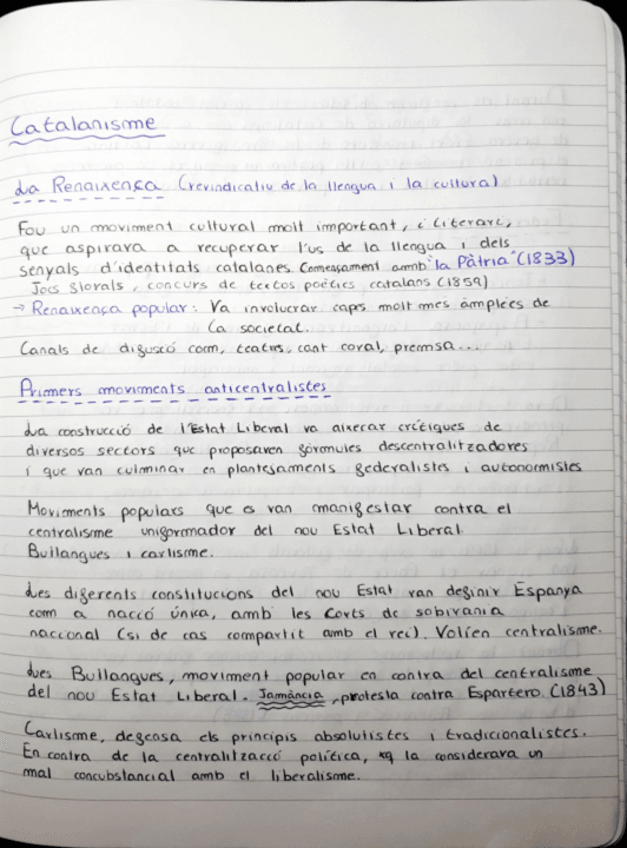 Catalanisme
La Renaixença (revindicatiu de la llengua i la cultura)
Fou un moviment cultural molt important, i literari,
que aspirava a recuperar l'us de la llengua i dels
senyals d'identitats catalanes. Començament amb "la Pàtria" (1833)
Jocs florals, concurs de textos poètics catalans (1859)
→ Renaixença popular: Va involucrar caps molt mes àmplies de
la societat.
Canals de difusció com, teatres, cant coral, premsa...
Primers moviments anticentralistes
La construcció de l'Estat Liberal va aixecar crítiques de
diversos sectors que proposaven fórmules descentralitzadores
i que van culminar en plantejaments federalistes i autonomistes
Moviments populars que es van manifestar contra el
centralisme uniformador del nou Estat Liberal.
Bullangues i carlisme.
Les diferents constitucions del nou Estat van definir Espanya
com a nacció única, amb les Corts de sobirania
naccional (si de cas compartit amb el rei). Volien centralisme.
Les Bullangues, moviment popular en contra del centralisme
del nou Estat Liberal. Jamància, protesta contra Espartero. (1843)
Carlisme, defensa els principis absolutistes i tradicionalistes.
En contra de la centralització política, q la considerava un
mal concubstancial amb el liberalisme.